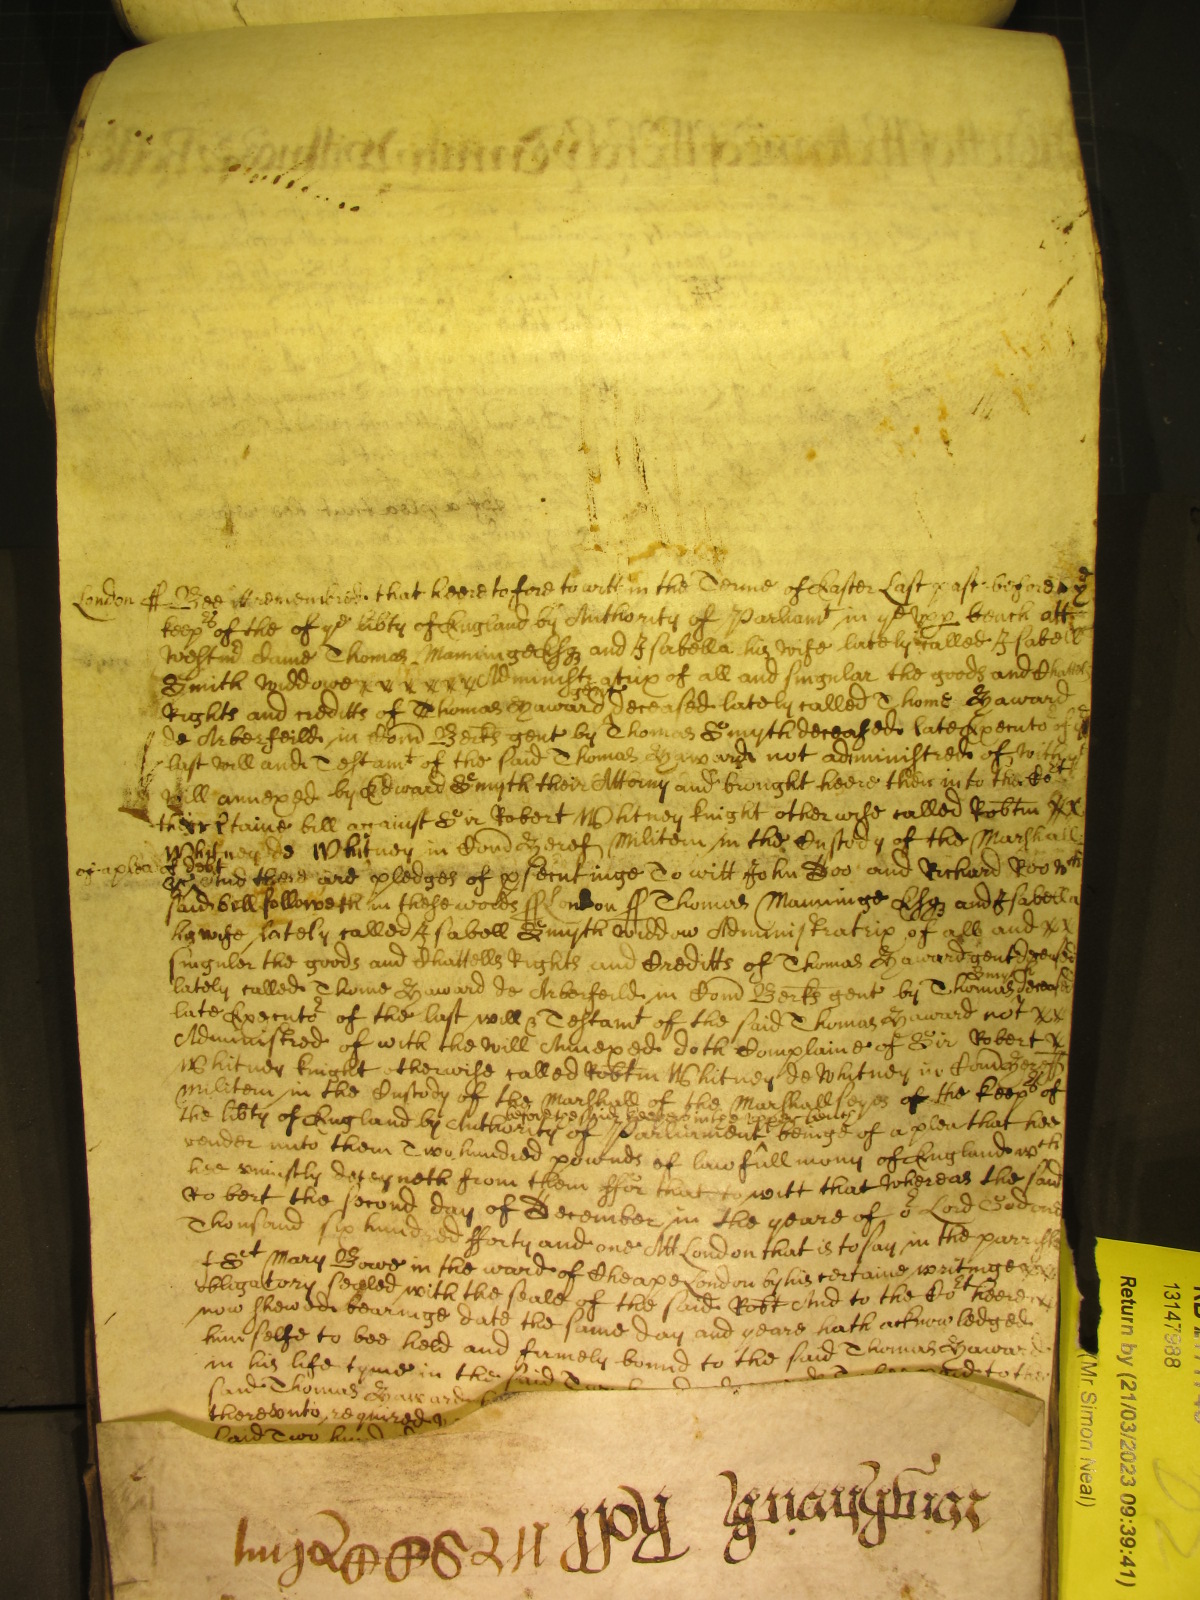 London ss Bee itt remembred that heeretofore to witt in the Terme of Easter Last past before ye
keeprs of the of ye libty of England by Authority of Parliamt in ye vpp bench att
Westmr Came Thomas Manninge Esqr and Isabella his wife lately called Isabell
Smith Widdowe x v v v v Administratrix of all and singular the goods and Chattels
Rights and creditts of Thomas Hayward gent deceased lately called Thome Hayward
de Arberfeild in Com Berks gent by Thomas Smyth deceased late Executor of ye
last will and Testamt of the said Thomas Hayward not administred of with ye
Will annexed by Edward Smyth their Attorny and brought heere then into the Cort
their Certaine bill against Sir Robert Whitney Knight otherwise called Robtm xx
Whitney de Whitney in Com Heref Militem in the Custody of the Marshall
of a plea of debt
And there are pledges of psecutinge To witt John Doo and Richard Roo wch
said bill followeth in these words ss London ss Thomas Manninge Esqr and Isabella
his wife lately called Isabell Smyth Widdow Administratrix of all and xx
singuler the goods and Chattells Rights and Creditts of Thomas Hayward gent deceased
lately called Thome Hayward de Arberfeild in Com Berks gent by Thomas Smyth deceased
late Executor of the last will & Testamt of the said Thomas Hayward not xx
Administred of with the Will Annexed doth Complaine of Sir Robert x
Whitney Knight otherwise called Robtm Whitney de Whitney in Com Heref
Militem in the Custody of the Marshall of the Marshallseyes of the keeprs of
the libty of England by Authority of Parliament before the said keeprs in the vpper bench beinge of a plea that hee
render unto them Two hundred pounds of lawfull mony of England wch
hee uniustly deteyneth from them ffor that to witt that Whereas the said
Robert the second day of December in the yeare of or Lord God one
Thousand six hundred fforty and one Att London that is to say in the parrish
of St Mary Bowe in the ward of Cheape London by his certaine writinge xx
obligatory sealed with the seale of the said Robt And to the Cort heere
now shewed bearinge date the same day and yeare hath acknowledged
himselfe to bee held and firmely bound to the said Thomas Hayward
in his life tyme in the said
said Thomas Hayward
thereunto required
said Two